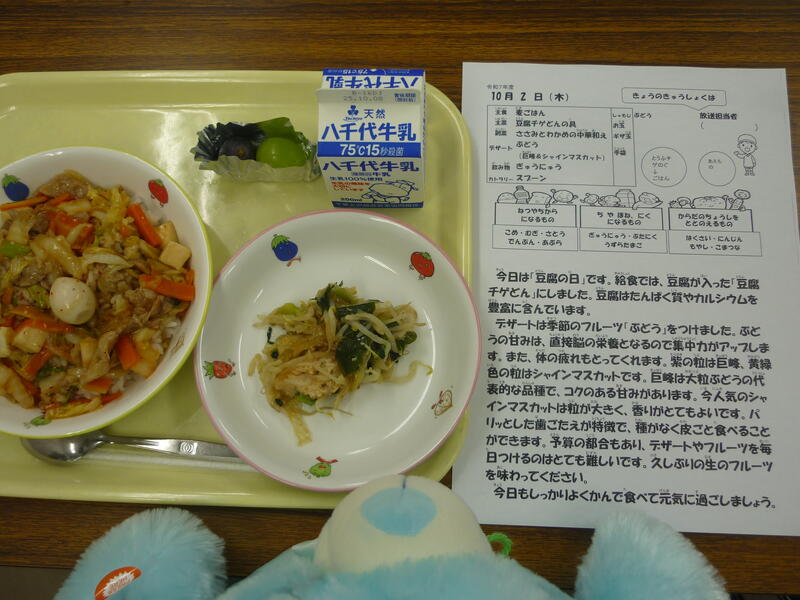 賞味期限
25.10.08
天然
八千代牛乳
75℃15秒殺菌
八千代牛乳
生乳100%使用
200ml
令和7年度
10月2日(木)
きょうのきゅうしょくは
主食 麦ごはん
主菜 豆腐チゲどんの具
副菜 ささみとわかめの中華和え
デザート ぶどう
(巨峰&シャインマスカット)
飲み物 ぎゅうにゅう
カトラリー スプーン
しょっき
ぶどう
お玉
ギザ玉
手袋
放送担当者
( )
とうふチゲのぐ
ごはん
あえもの
ねつやちからになるもの
ちやほね、にくになるもの
からだのちょうしをととのえるもの
こめ・むぎ・さとう
でんぷん・あぶら
ぎゅうにゅう・ぶたにく
うずらたまご
はくさい・にんじん
もやし・こまつな
今日は「豆腐の日」です。給食では、豆腐が入った「豆腐
チゲどん」にしました。豆腐はたんぱく質やカルシウムを
豊富に含んでいます。
デザートは季節のフルーツ「ぶどう」をつけました。ぶど
うの甘みは、直接脳の栄養となるので集中力がアップしま
す。また、体の疲れもとってくれます。紫の粒は巨峰、黄緑
色の粒はシャインマスカットです。巨峰は大粒ぶどうの代
表的な品種で、コクのある甘みがあります。今人気のシャ
インマスカットは粒が大きく、香りがとてもよいです。パ
リッとした歯ごたえが特徴で、種がなく皮ごと食べること
ができます。予算の都合もあり、デザートやフルーツを毎
日つけるのはとても難しいです。久しぶりの生のフルーツ
を味わってください。
今日もしっかりよくかんで食べて元気に過ごしましょう。